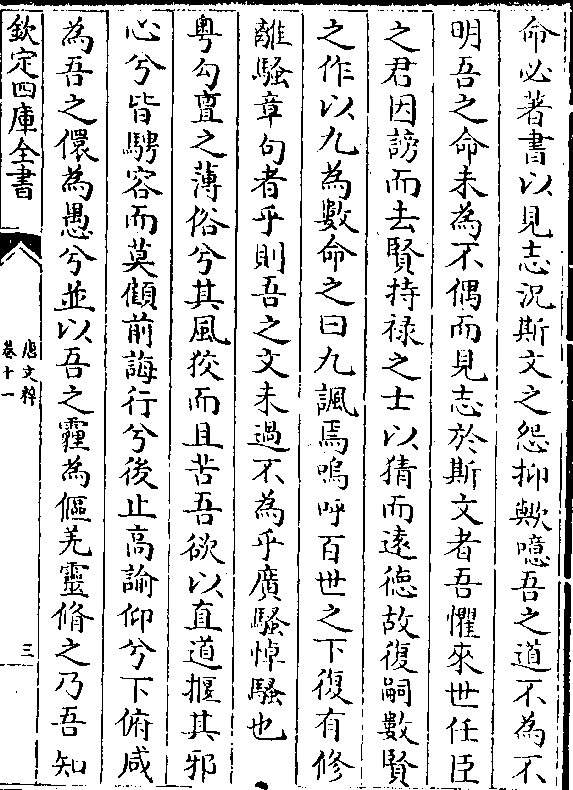 命必著書以見志況斯文之怨抑歟噫吾之道不為不
明吾之命未為不偶而見志於斯文者吾懼來世任臣
之君因謗而去賢持禄之士以猜而遠德故復嗣數賢
之作以九為數命之曰九諷焉嗚呼百世之下復有修
離騷章句者乎則吾之文未過不為乎廣騷悼騷也
粤勾亶之薄俗兮其風狡而且苦吾欲以直道揠其邪
心兮皆騁容而莫顧前誨行兮後止高論仰兮下俯咸
為吾之儇為愚兮並以吾之霾為傴羌靈脩之乃吾知
欽定四庫全書
唐文粹
卷十一
三